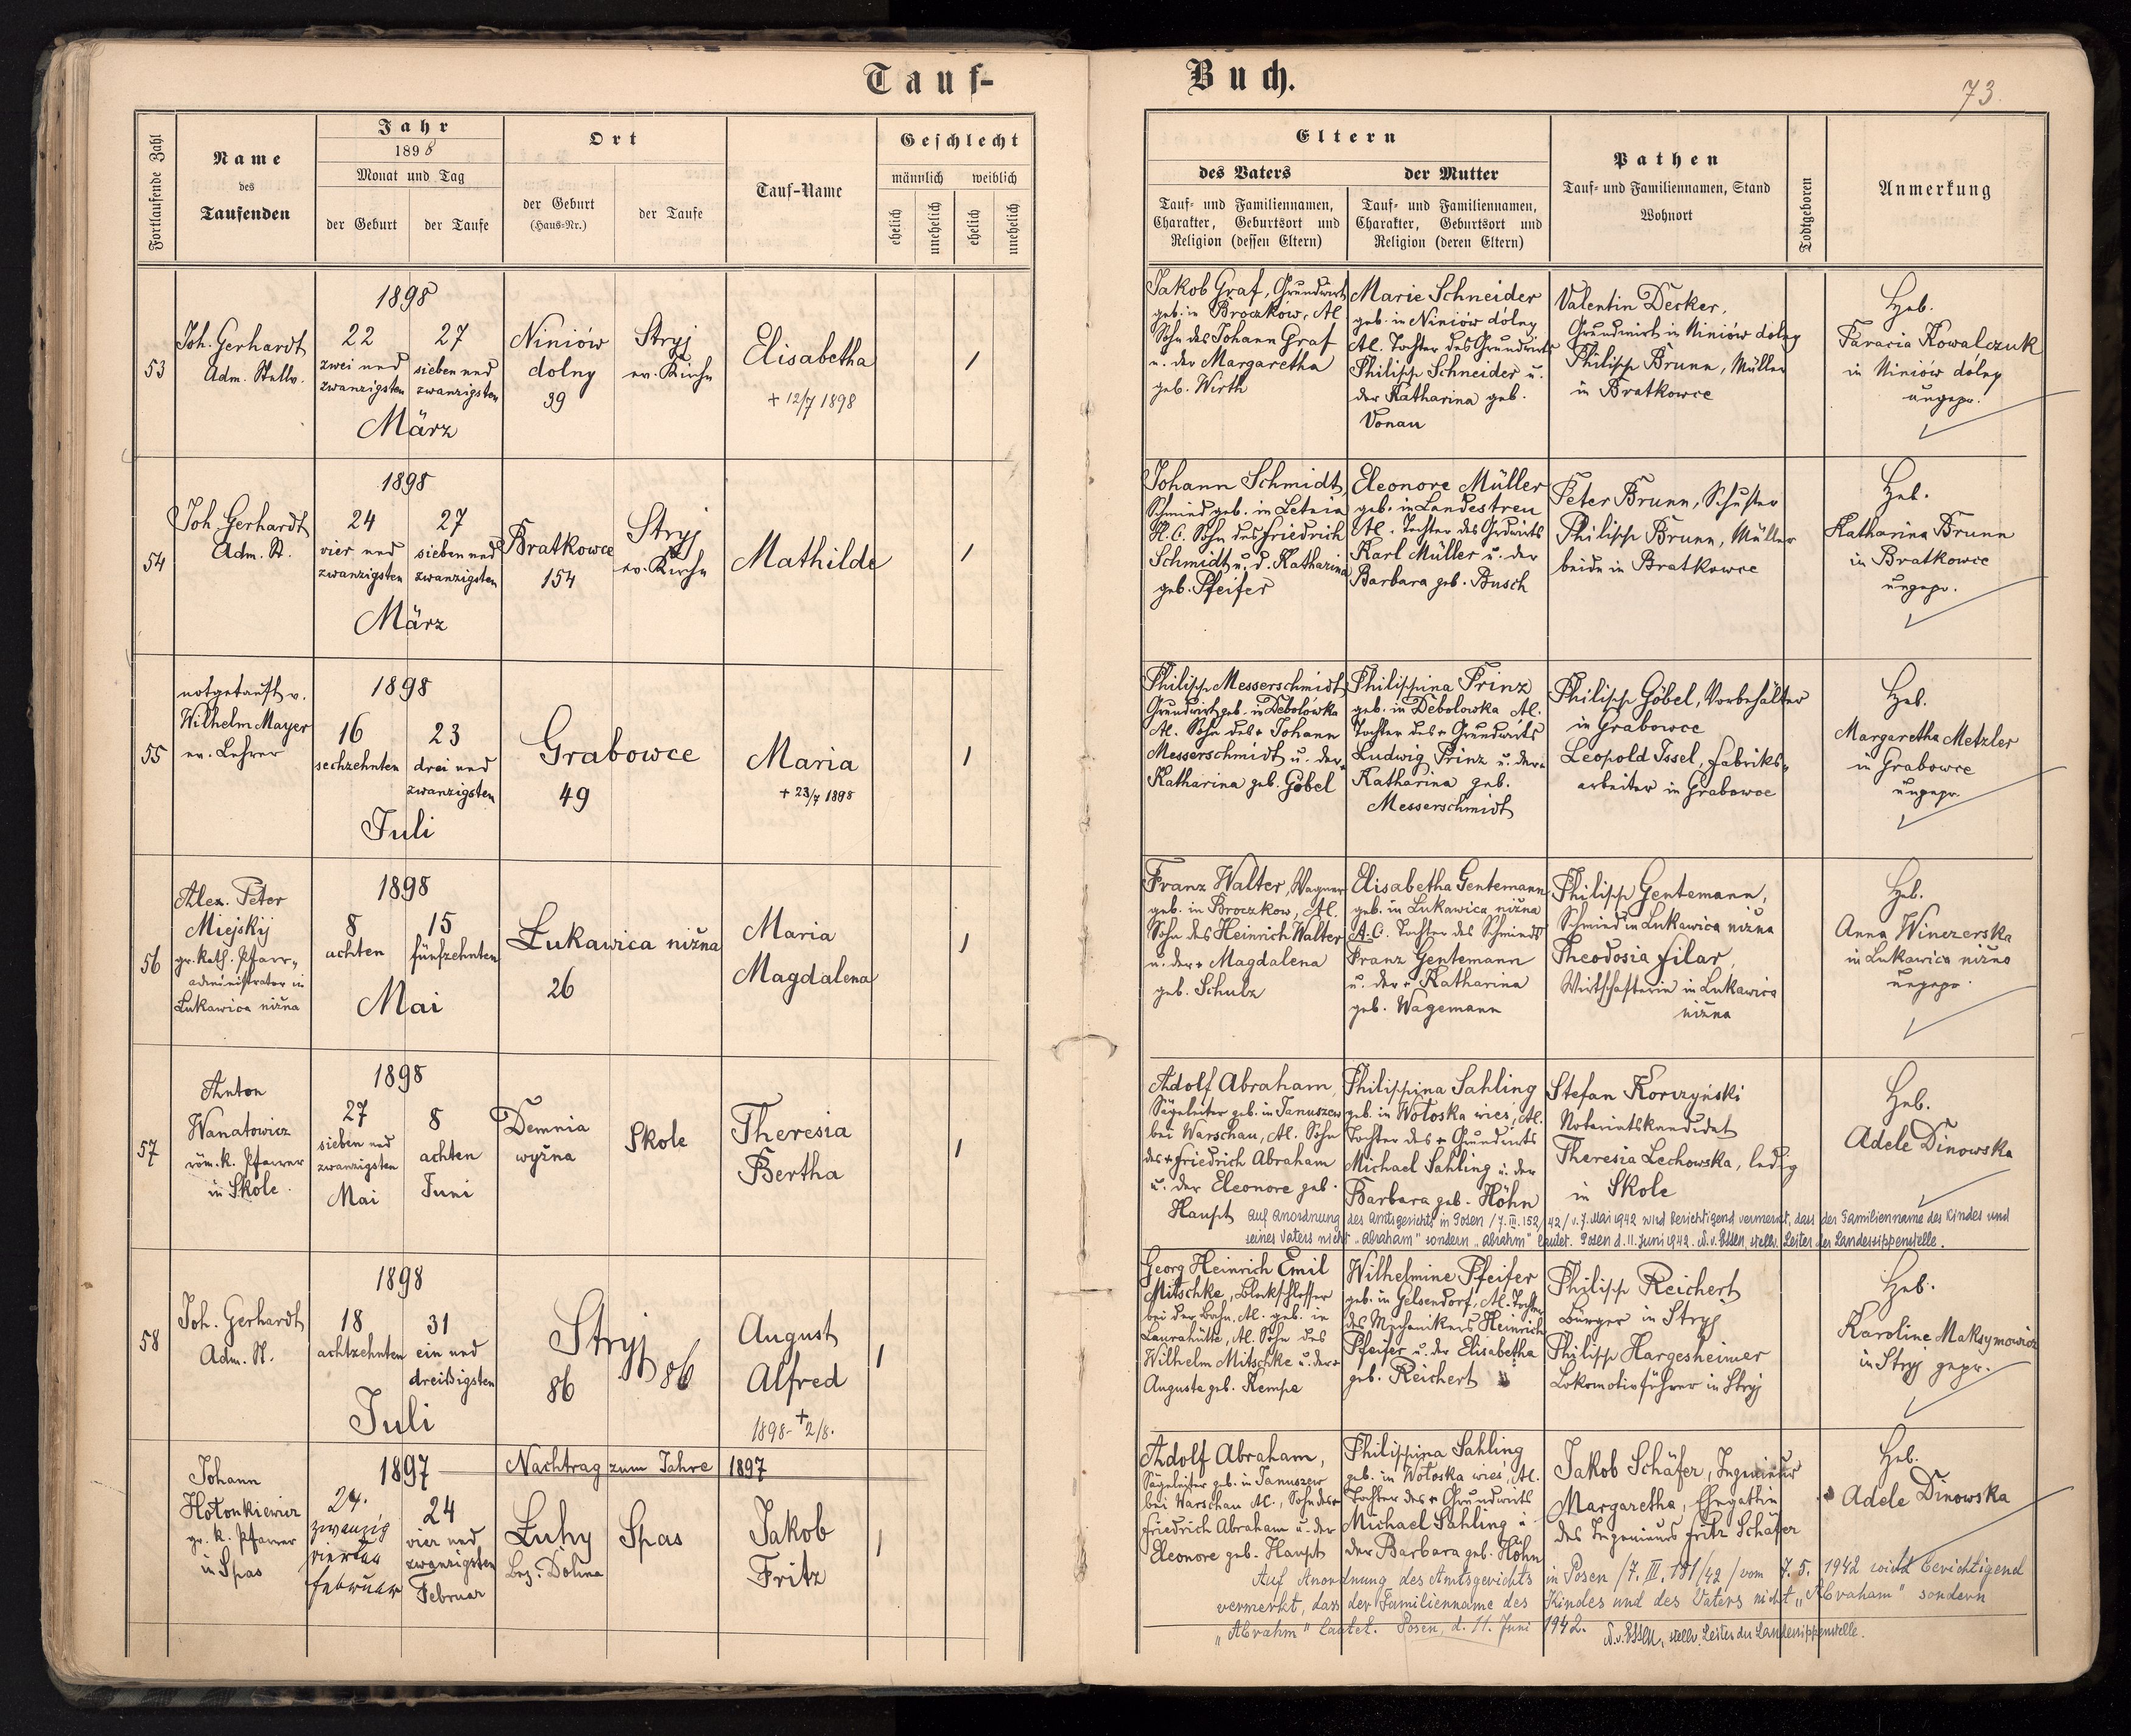 Tauf-
Buch.
73
Fortlaufende Zahl
Name
des
Taufenden
Jahr
1898
Monat und Tag
der Geburt
der Taufe
Ort
der Geburt
(Haus-Nr.)
der Taufe
Tauf-Name
Geschlecht
männlich
weiblich
ehelich
unehelich
ehelich
unehelich
Eltern
des Vaters
der Mutter
Tauf- und Familiennamen,
Charakter, Geburtsort und
Religion (dessen Eltern)
Tauf- und Familiennamen,
Charakter, Geburtsort und
Religion (deren Eltern)
Pathen
Tauf- und Familiennamen, Stand
Wohnort
Todtgeboren
Anmerkung
53
Joh. Gerhardt
Adm. Stellv.
1898
22
zwei und
zwanzigsten
27
sieben und
zwanzigsten
März
Niniów
dolny
39
Stryj
ev. Kirche
Elisabetha
+ 12/7 1898
1
Jakob Graf, Grundwirt
geb. in Broczków, AC
Sohn des Johann Graf
u. der Margaretha
geb. Wirth
Marie Schneider
geb. in Niniów dolny
AC. Tochter des Grundwirts
Philipp Schneider u.
der Katharina geb.
Vonau
Valentin Decker,
Grundwirt in Niniów dolny
Philipp Brunn, Müller
in Bratkowce
Heb.
Paracia Kowalczuk
in Niniów dólny
ungepr.
54
Joh. Gerhardt
Adm. St.
1898
24
vier und
zwanzigsten
27
sieben und
zwanzigsten
März
Bratkowce
154
Stryj
ev. Kirche
Mathilde
1
Johann Schmidt,
Schmied geb. in Letnia
H.C. Sohn des Friedrich
Schmidt u. d. Katharina
geb. Pfeifer
Eleonore Müller
geb. in Landestreu
AC. Tochter des Grdwirts
Karl Müller u. der
Barbara geb. Busch
Peter Brunn, Schuster
Philipp Brunn, Müller
beide in Bratkowce
Heb.
Katharina Brunn
in Bratkowce
ungepr.
55
notgetauft v.
Wilhelm Mayer
ev. Lehrer
1898
16
sechzehnten
23
drei und
zwanzigsten
Juli
Grabowce
49
Maria
+ 23/7 1898
1
Philipp Messerschmidt,
Grundwirt geb. in Debolówka
AC. Sohn des + Johann
Messerschmidt u. der +
Katharina geb. Göbel
Philippina Prinz
geb. in Debolowka AC.
Tochter des + Grundwirts
Ludwig Prinz u. der +
Katharina geb.
Messerschmidt
Philipp Göbel, Vorbehälter
in Grabowce
Leopold Issel, Fabriks-
arbeiter in Grabowce
Heb.
Margaretha Metzler
in Grabowce
ungepr.
56
Alex. Peter
Miejskij
gr. kath. Pfarr-
administrator in
Łukawica nižna
1898
8
achten
15
fünfzehnten
Mai
Łukawica nižna
26
Maria
Magdalena
1
Franz Walter, Wagner
geb. in Broczkow, AC.
Sohn des Heinrich Walter
u. der + Magdalena
geb. Schulz
Elisabetha Gentemann
geb. in Lukawica nižna
A.C. Tochter des Schmieds
Franz Gentemann
u. der + Katharina
geb. Wagemann
Philipp Gentemann,
Schmied in Lukawica nižna
Theodosia Filar,
Wirtschafterin in Lukawica
nižna
Heb.
Anna Winczerska
in Lukawica nižna
ungepr.
57
Anton
Wanatowicz
röm. k. Pfarrer
in Skole
1898
27
sieben und
zwanzigsten
Mai
8
achten
Juni
Demnia
wyžna
Skole
Theresia
Bertha
1
Adolf Abraham,
Sägeleiter geb. in Januszew
bei Warschau, AC. Sohn
des + Friedrich Abraham
u. der Eleonore geb.
Haupt
Philippina Sahling
geb. in Wołoska wieś, AC.
Tochter des + Grundwirts
Michael Sahling u. der
Barbara geb. Höhn
Stefan Korczyński
Notariatskandidat
Theresia Lechowska, ledig
in Skole
Heb.
Adele Dinowska
Auf Anordnung des Amtsgerichts in Posen / 7. III. 152/42 / v. 7. Mai 1942 wird berichtigend vermerkt, dass der Familienname des Kindes und
seines Vaters nicht „Abraham" sondern „Abrahm" lautet. Posen d. 11. Juni 1942. N. v. Essen, stellv. Leiter der Landessippenstelle.
58
Joh. Gerhardt
Adm. St.
1898
18
achtzehnten
31
ein und
dreißigsten
Juli
Stryj
86
86
August
Alfred
1898 - + 2/8.
1
Georg Heinrich Emil
Mitschke, Blockschlosser
bei der Bahn, AC. geb. in
Laurahütte, AC. Sohn des
Wilhelm Mitschke u. der +
Auguste geb. Kempe
Wilhelmine Pfeifer
geb. in Gelsendorf, AC. Tochter
des Mechanikers Heinrich
Pfeifer u. der Elisabetha
geb. Reichert
Philipp Reichert
Bürger in Stryj
Philipp Hargesheimer
Lokomotivführer in Stryj
Heb.
Karoline Maksymowicz
in Stryj gepr.
Johann
Hołonkiewicz
gr. k. Pfarrer
in Spas
1897
24.
zwanzig
vierten
Februar
24
vier und
zwanzigsten
Februar
Nachtrag zum Jahre 1897
Łuhy
Bez. Dolina
Spas
Jakob
Fritz
1
Adolf Abraham,
Sägeleiter geb. in Januszew
bei Warschau AC., Sohn des +
Friedrich Abraham u. der
Eleonore geb. Haupt
Philippina Sahling
geb. in Wołoska wieś, AC.
Tochter des + Grundwirts
Michael Sahling u.
der Barbara geb. Höhn
Jakob Schäfer, Ingenieur
Margaretha, Ehegattin
des Ingenieurs Fritz Schäfer
Heb.
Adele Dinowska
Auf Anordnung des Amtsgerichts in Posen / 7. III. 151/42 / vom 7. 5. 1942 wird berichtigend
vermerkt, dass der Familienname des Kindes und des Vaters nicht „Abraham" sondern
„Abrahm" lautet. Posen, d. 11. Juni 1942. N. v. Essen, stellv. Leiter der Landessippenstelle.